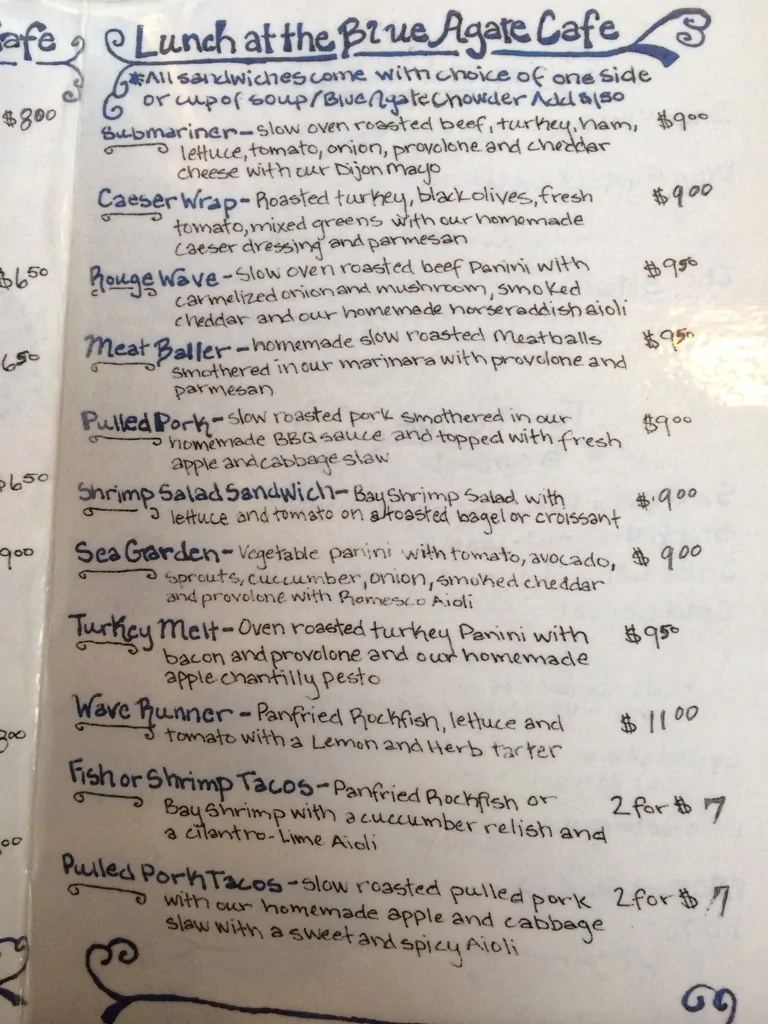 afe
$800
$650
650
$650
900
300
00
Lunch at the Blue Agate Cafe
*All sandwiches come with choice of one side
or cup of soup/Blue Agate Chowder Add $1.50
Submariner - slow oven roasted beef, turkey, ham, $900
lettuce, tomato, onion, provolone and cheddar
cheese with our Dijon mayo
Caeser Wrap - Roasted turkey, black olives, fresh $900
tomato, mixed greens with our homemade
caeser dressing and parmesan
Rouge Wave - Slow oven roasted beef Panini with $950
carmelized onion and mushroom, smoked
cheddar and our homemade horseraddish aioli
Meat Baller - homemade slow roasted Meatballs $950
smothered in our marinara with provolone and
parmesan
Pulled Pork - slow roasted pork smothered in our $900
homemade BBQ sauce and topped with fresh
apple and cabbage slaw
Shrimp Salad Sandwich - Bay Shrimp Salad with $900
lettuce and tomato on a toasted bagel or croissant
Sea Garden - Vegetable panini with tomato, avocado, $900
sprouts, cuccumber, onion, smoked cheddar
and provolone with Romesco Aioli
Turkey Melt - Oven roasted turkey Panini with $950
bacon and provolone and our homemade
apple chantilly pesto
Wave Runner - Panfried Rockfish, lettuce and $1100
tomato with a Lemon and Herb tarter
Fish or Shrimp Tacos - Panfried Rockfish or 2 for $7
Bay Shrimp with a cuccumber relish and
a cilantro-Lime Aioli
Pulled Pork Tacos - slow roasted pulled pork 2 for $7
with our homemade apple and cabbage
slaw with a sweet and spicy Aioli